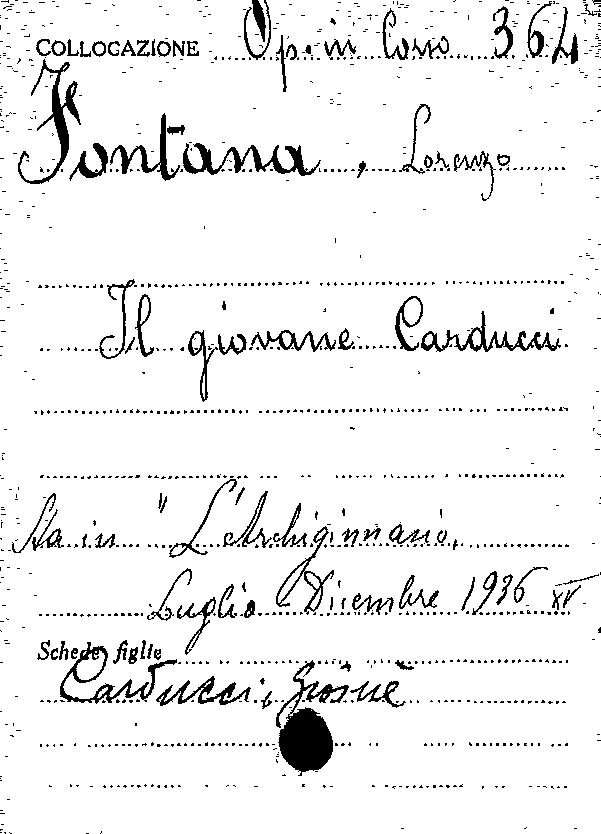 COLLOCAZIONE Op. in Corso 364
Fontana, Lorenzo
Il giovane Carducci
Sta in "L'Archiginnasio,
Luglio - Dicembre 1936 XV
Schede figlie
Carducci, Giosuè